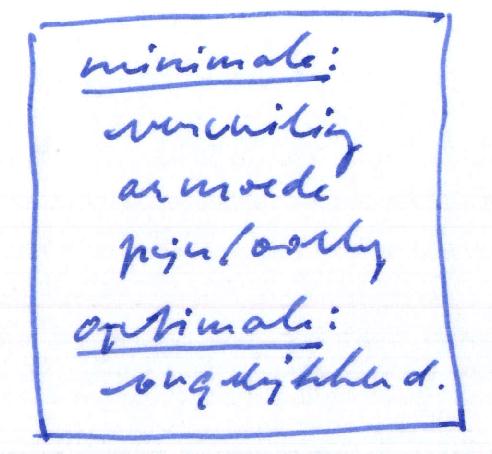 minimale:
vervuiling
armoede
pijn/oorlog
optimale:
ongelijkheid.